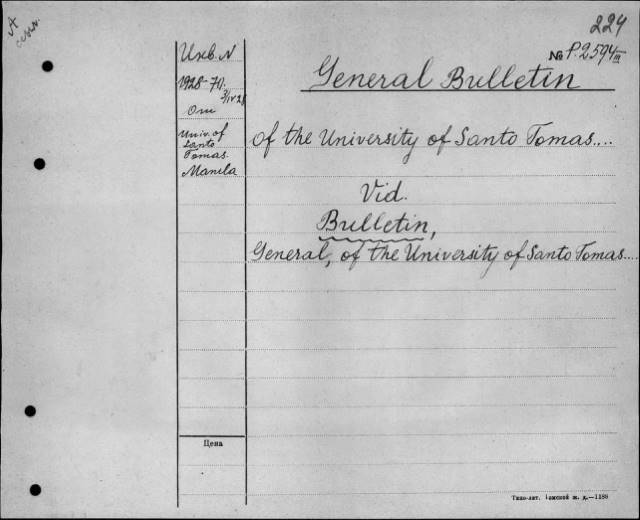 224
№ P.2594 III
Инв. N
1928-70.
3/IV 28
Univ. of
Santo
Tomas.
Manila
General Bulletin
of the University of Santo Tomas....
Vid.
Bulletin,
General, of the University of Santo Tomas....
Цена